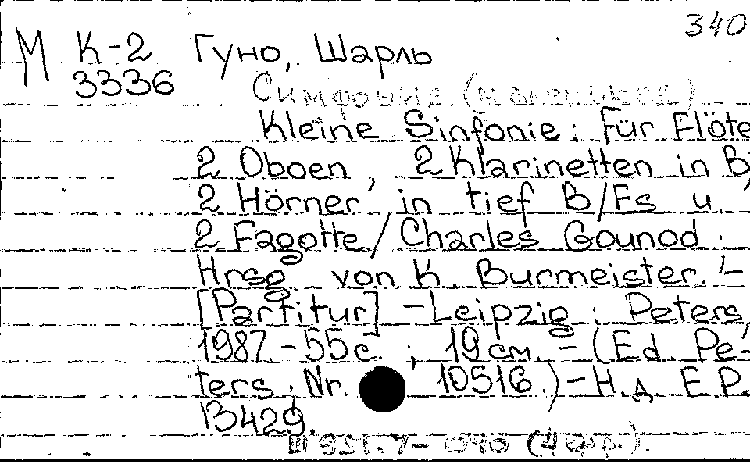 340
М К-2 Гуно, Шарль
3336 Симфония (маленькая)
Kleine Sinfonie: Für Flöte
2 Oboen, 2 Klarinetten in B,
2 Hörner, in tief B/Es u.
2 Fagotte / Charles Gounod.
Hrsg. von K. Burmeister. –
[Partitur] – Leipzig: Peters,
1987. – 55 с.; 19 см. – (Ed. Pe-
ters. Nr. 10516.) – Н.д. E.P.
13429.
(4 фр.).